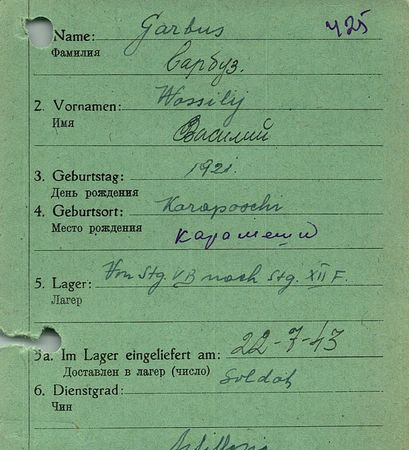 Name: Garbus 425
Фамилия Сарбуз.
2. Vornamen: Wassilij
Имя Василий
3. Geburtstag: 1921.
День рождения
4. Geburtsort: Karaposchi
Место рождения карапеши
5. Lager: Von Stg. VB nach Stg. XII F.
Лагер
5a. Im Lager eingeliefert am: 22-7-43
Доставлен в лагер (число)
6. Dienstgrad: Soldat
Чин